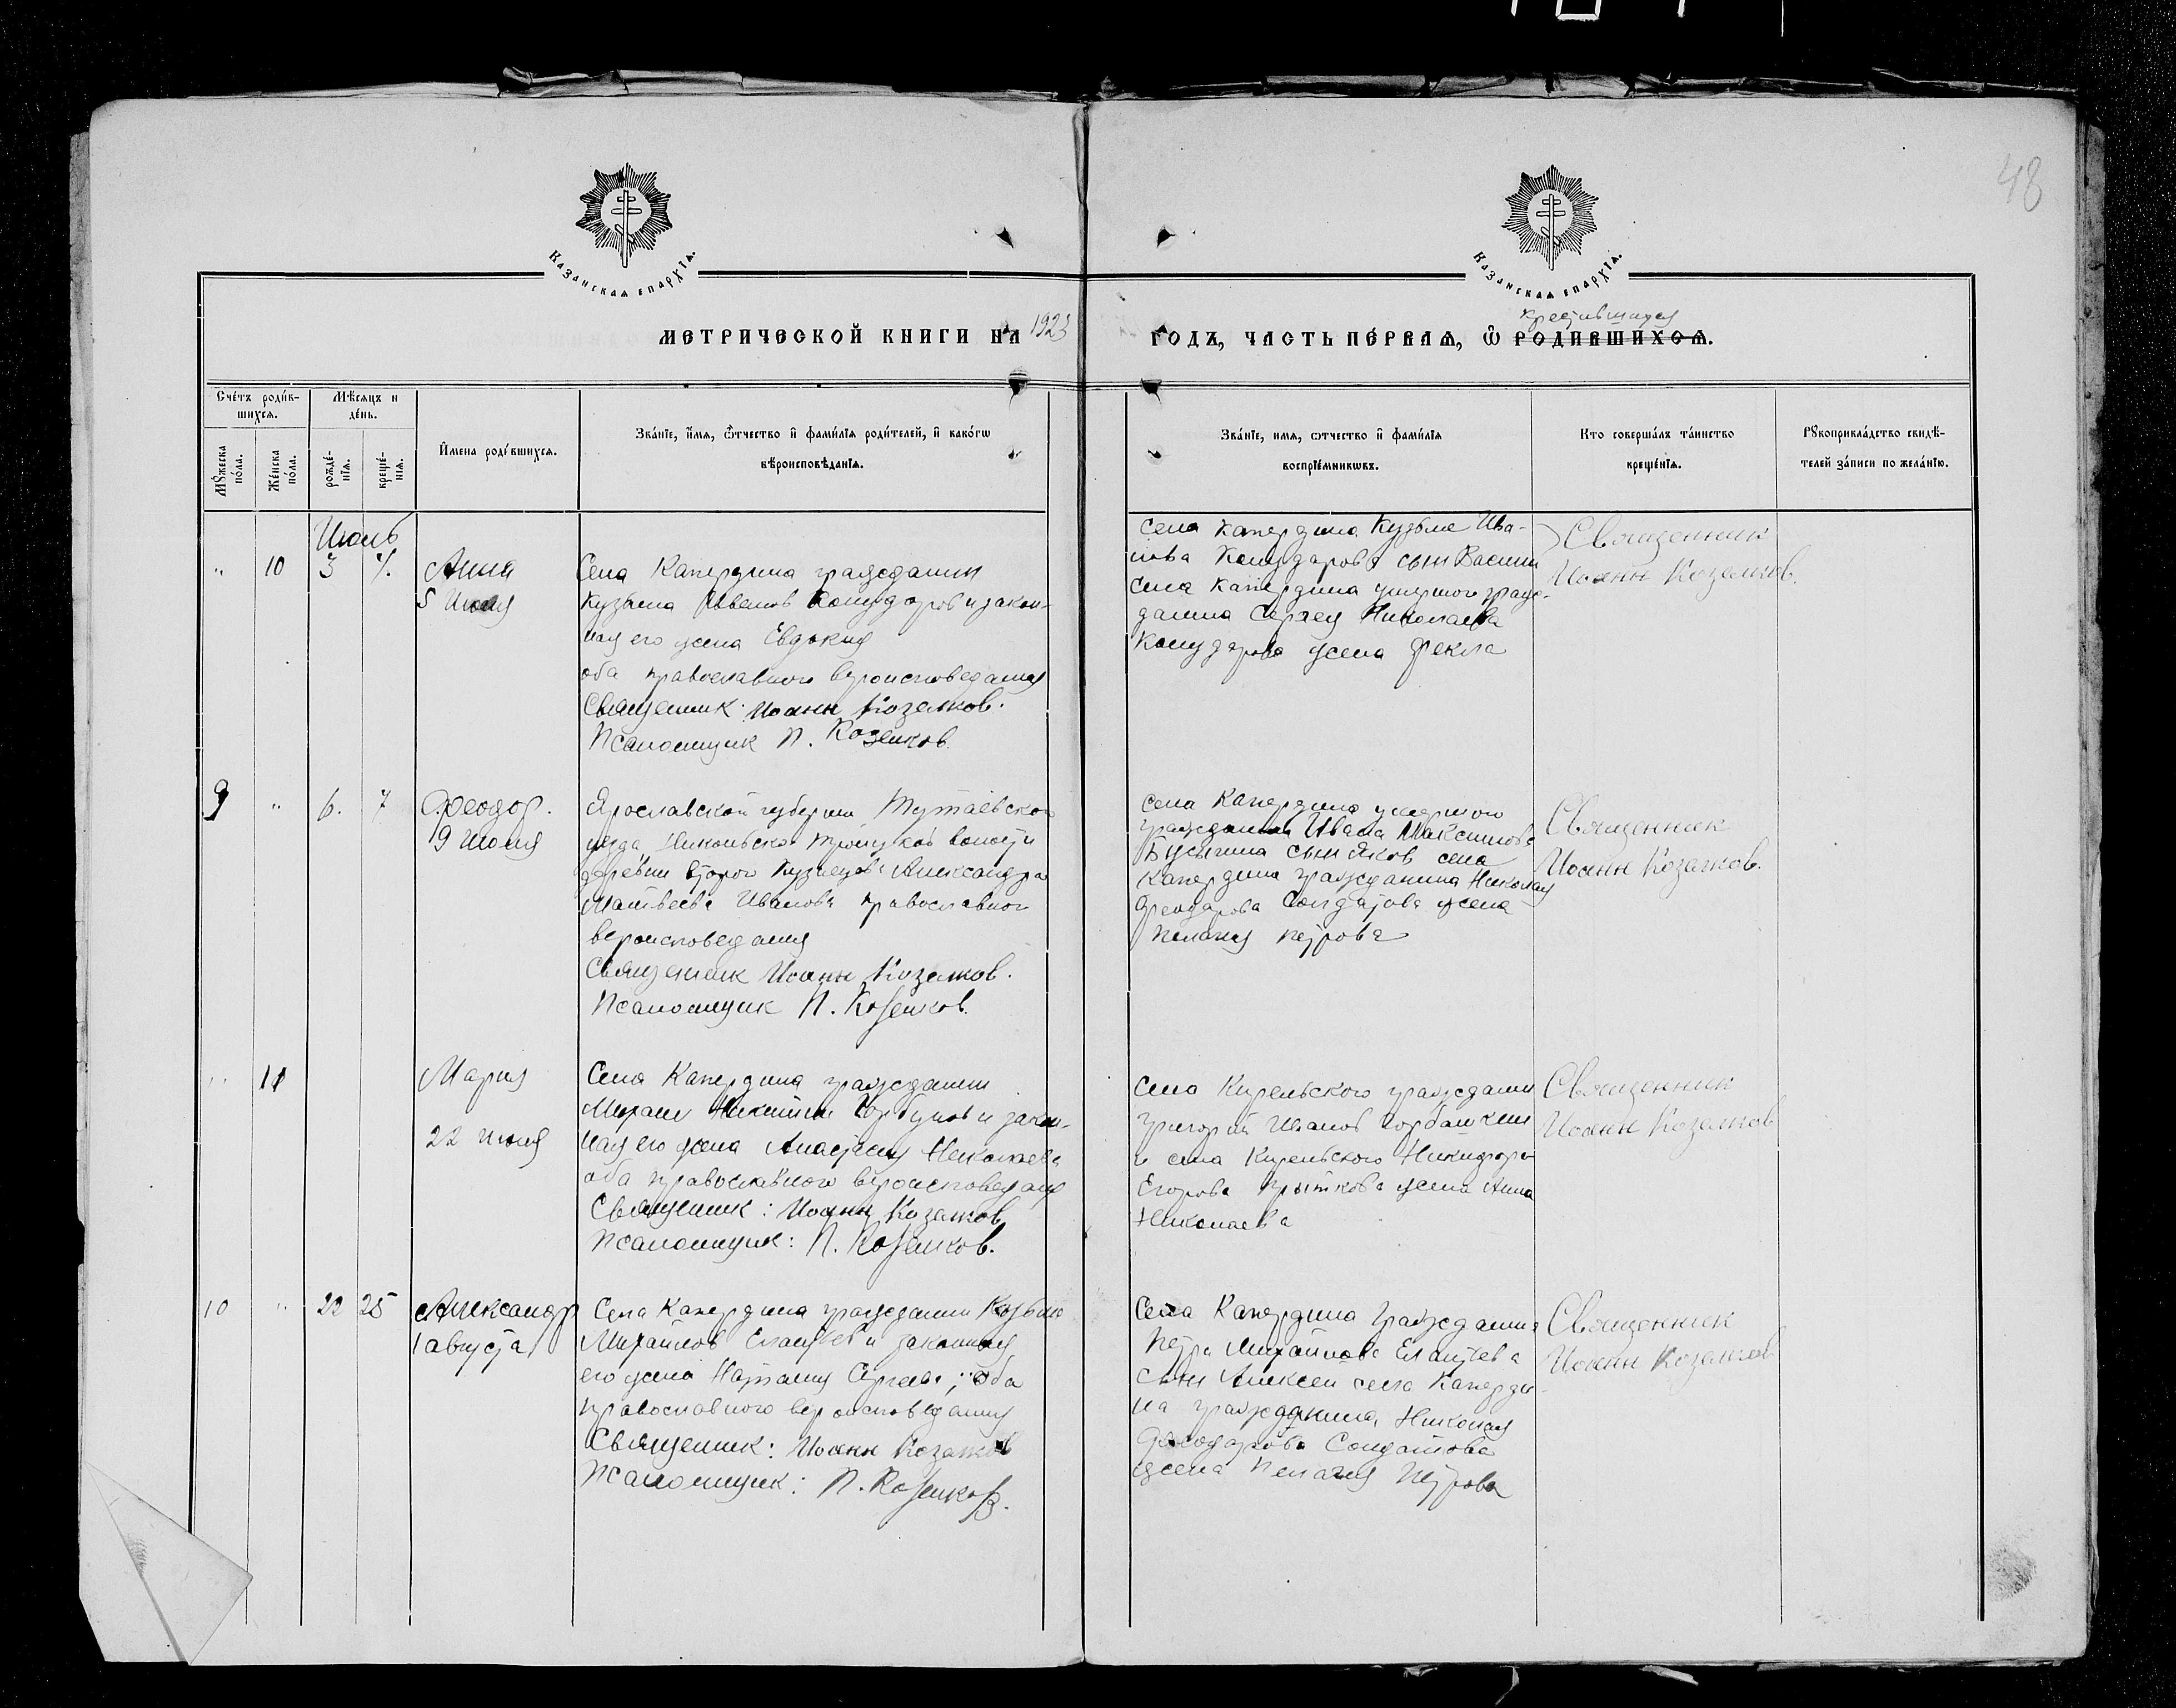 48
Казанскаѧ епархїѧ.
Казанскаѧ епархїѧ.
МЕТРИЧЕСКОЙ КНИГИ НА 1923
крестившихся
ГОДЪ, ЧАСТЬ ПЕ́РВАѦ, Ѡ҆ РОДИВШИХСѦ.
Сче́тъ роди́в-
шихсѧ.
Мѣ́сяцъ и
де́нь.
Мꙋ́жеска
по́ла.
Же́нска
по́ла.
рожде́-
нїѧ.
креще́-
нїѧ.
И҆мена роди́вшихсѧ.
Зва́нїе, и҆́мѧ, ѻ҆́тчество и҆ фами́лїѧ роди́телей, и҆ како́гѡ
вѣроисповѣ́данїѧ.
Зва́нїе, имѧ, ѻтчество и҆ фами́лїѧ
воспрїе́мникѡвъ.
Кто соверша́лъ та́инство
креще́нїѧ.
Рꙋкоприкла́дство свидѣ́-
телей за́писи по жела́нїю.
Июль
" 10 3 7. Анна
5 Июля
Села Капердина гражданин
Кузьма Иванов и закон-
ная его жена Евдокия
оба православного вероисповедания
Священник Иоанн Козелков.
Псаломщик П. Козелков.
Села Капердина Кузьмы Ива-
нова сын Василий
Села Капердина умершого граж-
данина Сергея Николаева
жена Фекла
Священник
Иоанн Козелков.
9 " 6. 7 Феодор.
19 Июля
Ярославской губернии Тутаевского
уезда Никольско Троицкой волости
деревни Второго Кузнецова Александра
Матвеева Иванова православного
вероисповедания
Священник Иоанн Козелков.
Псаломщик П. Козелков.
Села Капердина умершого
гражданина Ивана Максимова
Бусыгина сын Яков села
Капердина гражданина Николая
Феодорова Солдатова жена
Пелагия Петрова
Священник
Иоанн Козелков.
" 11 Мария
22 июля
Села Капердина гражданин
Никитин Горбунов и закон-
ная его жена Анастасия Николаева
оба православного вероисповедания
Священник: Иоанн Козелков
Псаломщик: П. Козелков.
Села Кирельского гражданин
Григорий Иванов Горбашкин
и села Кирельского Никифора
Егорова Прыткова жена Анна
Николаева
Священник
Иоанн Козелков
10 " 22 25 Александр
1 августа
Села Капердина гражданин Козьма
Михайлов и законная
его жена Наталия Сергеева; оба
православного вероисповедания
Священник: Иоанн Козелков
Псаломщик: П. Козелков.
Села Капердина гражданина
Петра Михайлова
сын Алексей села Каперди-
на гражданина Николая
Феодорова Солдатова
жена Пелагия Петрова
Священник
Иоанн Козелков